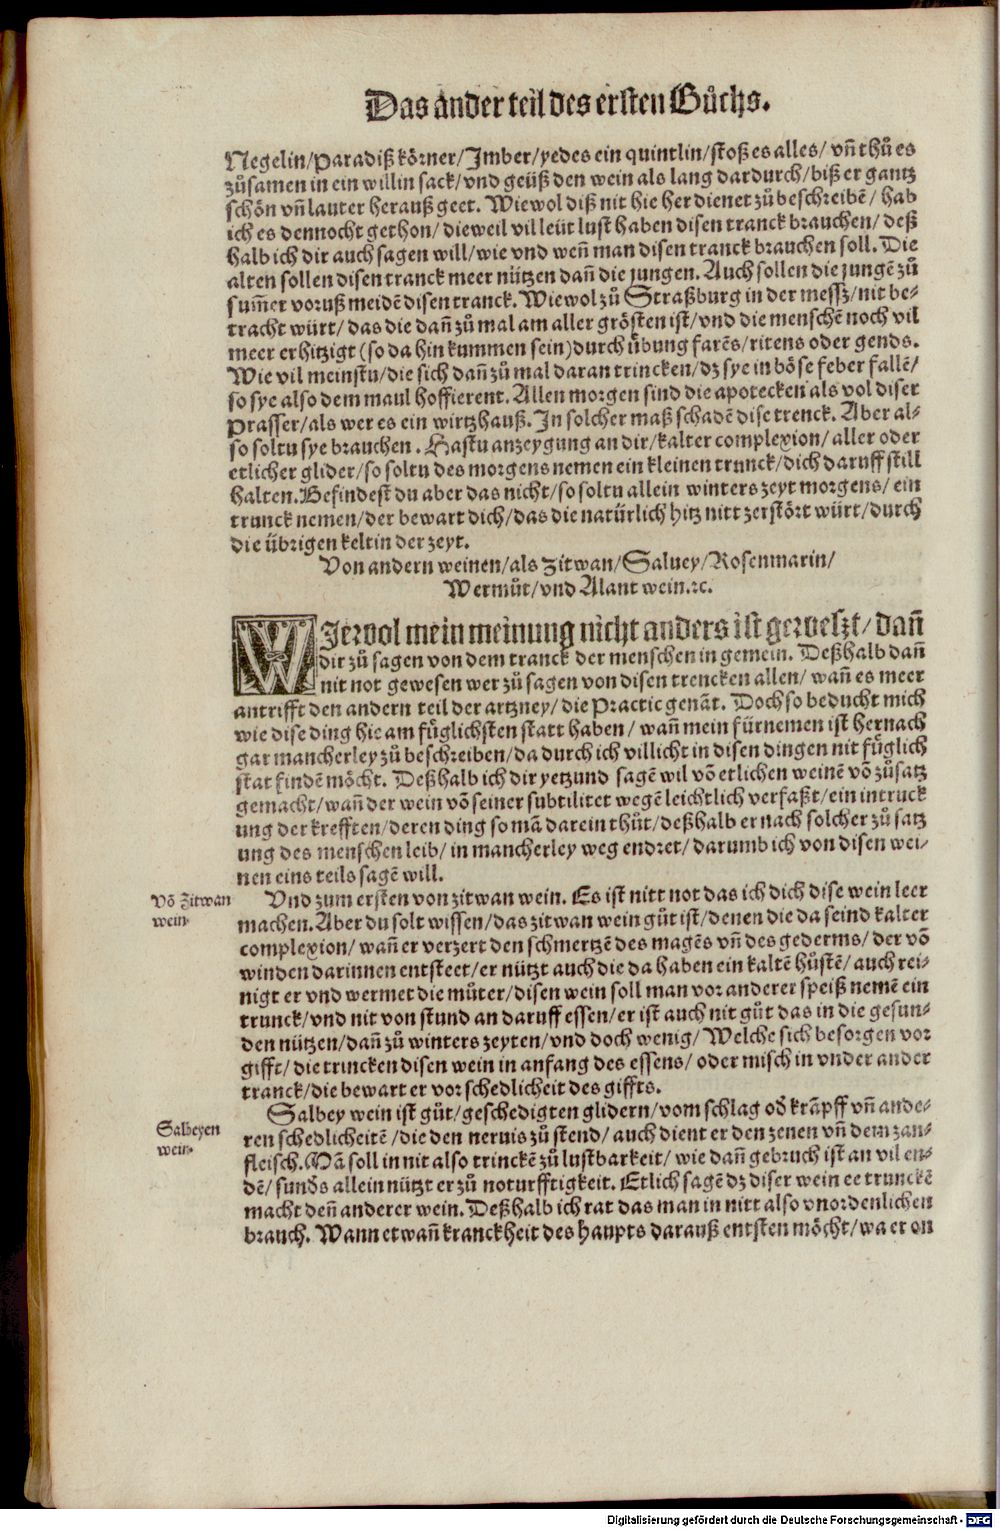 Das ander teil des ersten Bůchs.
Negelin/Paradiß körner/Imber/yedes ein quintlin/stoß es alles/ vñ thů es
zůsamen in ein willin sack/vnd geüß den wein als lang dardurch/biß er gantz
schön vñ lauter herauß geet. Wiewol diß nit hie her dienet zů beschreibē/ hab
ich es dennocht gethon/ dieweil vil leüt lust haben disen tranck brauchen/ deß
halb ich dir auch sagen will/wie vnd weñ man disen tranck brauchen soll. Die
alten sollen disen tranck meer nützen dañ die jungen. Auch sollen die jungē zů
sum̃er voruß meidē disen tranck. Wiewol zů Straßburg in der messz/nit be-
tracht würt/ das die dañ zů mal am aller grösten ist/vnd die menschē noch vil
meer erhitzigt (so da hin kummen sein)durch übung farēs/ritens oder gends.
Wie vil meinstu/die sich dañ zů mal daran trincken/dz sye in böse feber fallē/
so sye also dem maul hoffierent. Allen morgen sind die apotecken als vol diser
Prasser/als wer es ein wirtzhauß. In solcher maß schadē dise trenck. Aber al-
so soltu sye brauchen. Hastu anzeygung an dir/kalter complexion/ aller oder
etlicher glider/so soltu des morgens nemen ein kleinen trunck/dich daruff still
halten. Befindest du aber das nicht/so soltu allein winters zeyt morgens/ ein
trunck nemen/der bewart dich/das die natürlich hitz nitt zerstört würt/durch
die übrigen kelt in der zeyt.
Von andern weinen/als Zitwan/Saluey/Rosenmarin/
Wermůt/vnd Alant wein.ꝛc.
WIewol mein meinung nicht anders ist gewesзt/dañ
dir zů sagen von dem tranck der menschen in gemein. Deßhalb dañ
nit not gewesen wer zů sagen von disen trencken allen/ wañ es meer
antrifft den andern teil der artzney/die Practic genāt. Doch so beducht mich
wie dise ding hie am füglichsten statt haben/ wañ mein fürnemen ist hernach
gar mancherley zů beschreiben/da durch ich villicht in disen dingen nit füglich
stat findē möcht. Deßhalb ich dir yetzund sagē wil vō etlichen weinē vō zůsatz
gemacht/wañ der wein vō seiner subtilitet wegē leichtlich verfaßt/ein intruck
ung der krefften/deren ding so mā darein thůt/deßhalb er nach solcher zů satz
ung des menschen leib/ in mancherley weg endret/darumb ich von disen wei-
nen eins teils sagē will.
Vō Zitwan
wein.
Vnd zum ersten von zitwan wein. Es ist nitt not das ich dich dise wein leer
machen. Aber du solt wissen/das zitwan wein gůt ist/denen die da seind kalter
complexion/ wañ er verzert den schmertzē des magēs vñ des gederms/der vō
winden darinnen entsteet/er nützt auch die da haben ein kaltē hůstē/auch rei-
nigt er vnd wermet die můter/disen wein soll man vor anderer speiß nemē ein
trunck/vnd nit von stund an daruff essen/er ist auch nit gůt das in die gesun-
den nützen/dañ zů winters zeyten/vnd doch wenig/ Welche sich besorgen vor
gifft/die trincken disen wein in anfang des essens/ oder misch in vnder ander
tranck/die bewart er vor schedlicheit des giffts.
Salbeyen
wein.
Salbey wein ist gůt/geschedigten glidern/vom schlag od̕ krāpff vñ ande-
ren schedlicheitē/die den neruis zů stend/ auch dient er den zenen vñ dem zan-
fleisch. Mā soll in nit also trinckē zů lustbarkeit/ wie dañ gebruch ist an vil en-
dē/sund̕s allein nützt er zů noturfftigkeit. Etlich sagē dz diser wein ee trunckē
macht deñ anderer wein. Deßhalb ich rat das man in nitt also vnordenlichen
brauch. Wann etwañ kranckheit des haupts darauß entsten möcht/wa er on
Digitalisierung gefördert durch die Deutsche Forschungsgemeinschaft - DFG